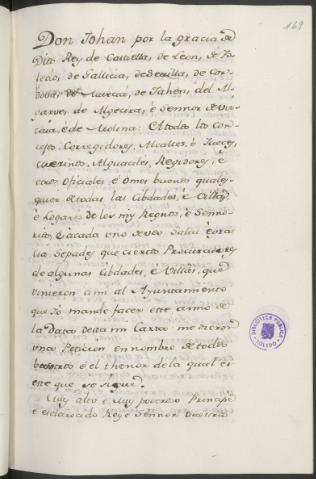 169
Don Johan por la gracia de
Dios Rey de Castella, de Leon, de To-
ledo, de Gallicia, de Sevilla, de Cor-
dova, de Murcia, de Jahen, del Al-
garve, de Algecira, é Sennor de Viz-
caia, e de Molina: A todos los Con-
cejos, Corregidores, Alcaldes, é Jueces,
é Merinos, Alguaciles, Regidores, é
otros Oficiales é Omes buenos quales-
quier de todas las Cibdades, é Villas,
é Logares de los mis Regnos, é Senno-
rios, é a cada uno de vos Salud é Gra-
cia. Sepades que ciertos Procuradores
de algunas Cibdades, é Villas, que
vinieron a mi al Ayuntamiento
que Yo mandé facer este anno de
la Data desta mi Carta: me dieron
una Peticion en nombre de todos
é el thenor de la qual es
este que se sigue.
Muy alto é muy poderoso Principe
é esclarecido Rey é Sennor Vuestros
BIBLIOTECA PUBLICA
TOLEDO